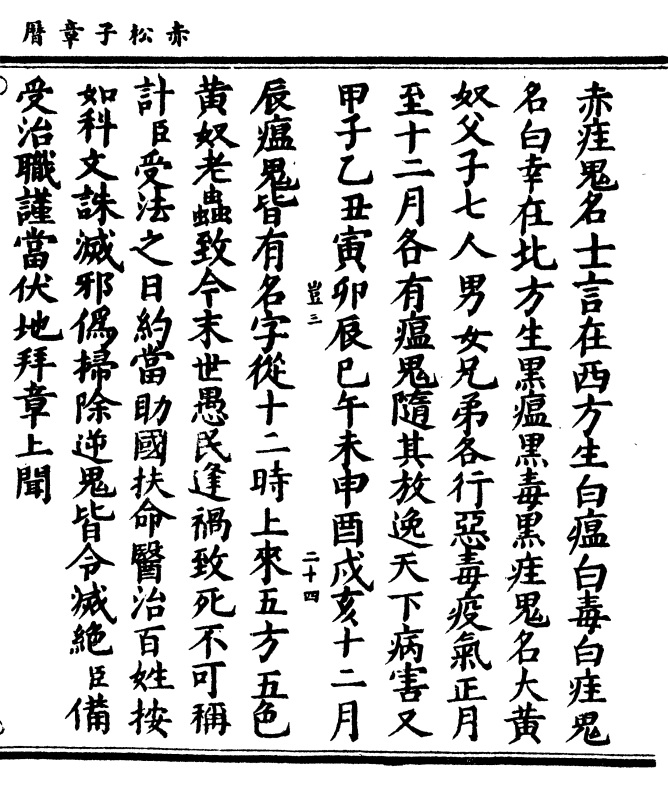 赤松子章曆
赤疰鬼名士言在西方生白瘟白毒白疰鬼
名白幸在北方生黑瘟黑毒黑疰鬼名大黄
奴父子七人男女兄弟各行惡毒疫氣正月
至十二月各有瘟鬼隨其放逸天下病害又
甲子乙丑寅卯辰巳午未申酉戍亥十二月
豈三
二十四
辰瘟鬼皆有名字從十二時上來五方五色
黄奴老蟲致令末世愚民逢禍致死不可稱
計臣受法之日約當助國扶命醫治百姓按
如科文誅滅邪僞掃除逆鬼皆令滅絶臣備
受治職謹當伏地拜章上聞